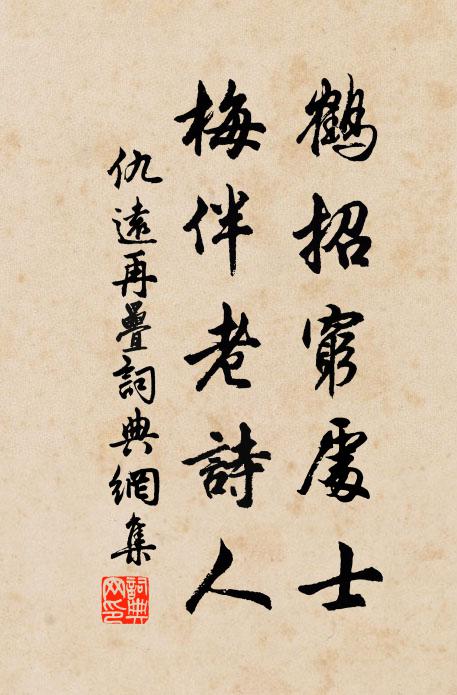 鶴招窮處士
梅伴老詩人
仇遠再疊詞典網集
詞典
网印